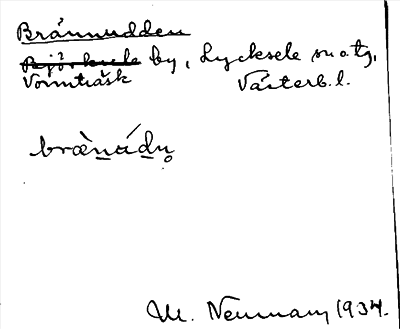 Brännudden
Björksele by, Lycksele sn o. tg,
Vormträsk Västerb. l.
bræ̀núdn̥
M. Neumann 1934.